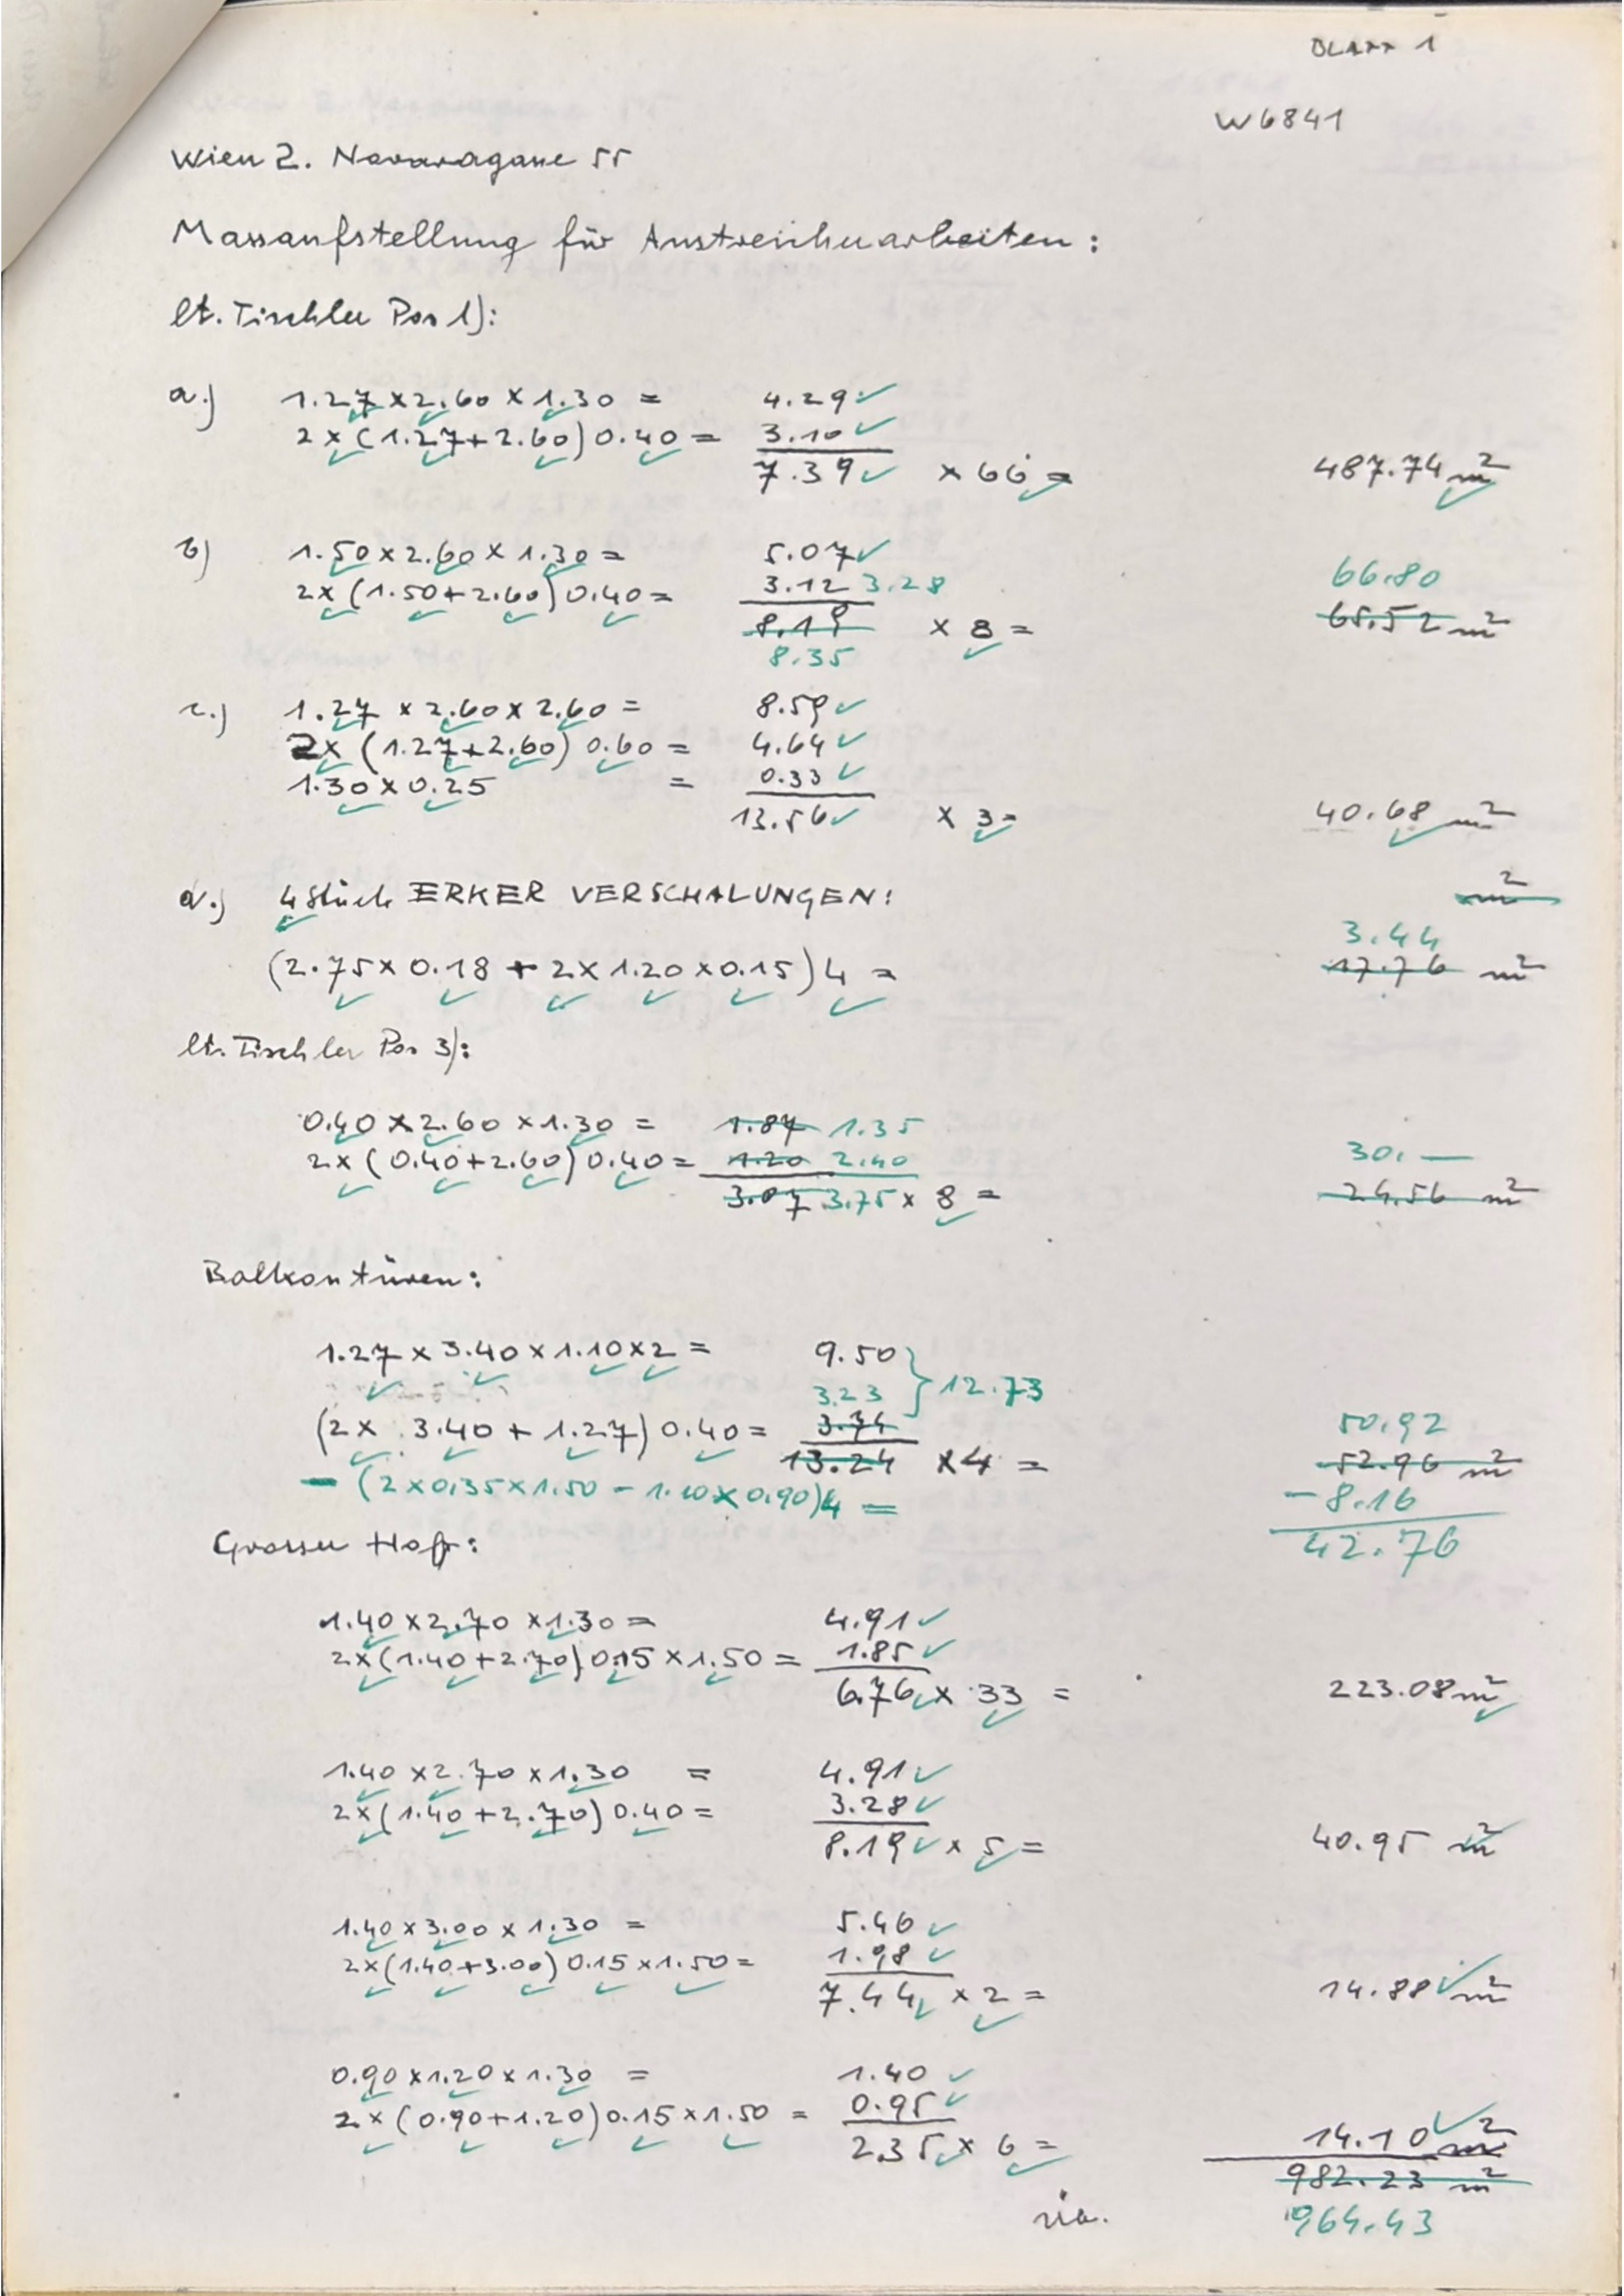 BLATT 1
W6841
Wien 2. Novaragasse 55
Massaufstellung für Anstreicherarbeiten:
lt. Tischler Pos 1):
a.) 1.27 x 2.60 x 1.30 = 4.29 ✓
2 x (1.27 + 2.60) 0.40 = 3.10 ✓
7.39 ✓ x 66 = 487.74 m²
b) 1.50 x 2.60 x 1.30 = 5.07 ✓
66.80
2x (1.50 + 2.60) 0.40 = 3.12 3.28
8.19 x 8 = 65.52 m²
8.35
c.) 1.27 x 2.60 x 2.60 = 8.59 ✓
2x (1.27 + 2.60) 0.60 = 4.64 ✓
1.30 x 0.25 = 0.33 ✓
13.56 ✓ x 3 = 40.68 m²
d.) 4 Stück ERKER VERSCHALUNGEN: m²
3.44
(2.75 x 0.18 + 2 x 1.20 x 0.15) 4 = 17.76 m²
lt. Tischler Pos 3):
0.40 x 2.60 x 1.30 = 1.87 1.35
2 x (0.40 + 2.60) 0.40 = 1.20 2.40 30.—
3.07 3.75 x 8 = 24.56 m²
Balkontüren:
1.27 x 3.40 x 1.10 x 2 = 9.50
3.23 } 12.73
(2 x 3.40 + 1.27) 0.40 = 3.74 50.92
13.24 x 4 = 52.96 m²
- (2 x 0.35 x 1.50 - 1.10 x 0.90) 4 = - 8.16
42.76
Grosser Hof:
1.40 x 2.70 x 1.30 = 4.91 ✓
2 x (1.40 + 2.70) 0.15 x 1.50 = 1.85 ✓
6.76 ✓ x 33 = 223.08 m²
1.40 x 2.70 x 1.30 = 4.91 ✓
2 x (1.40 + 2.70) 0.40 = 3.28 ✓
8.19 ✓ x 5 = 40.95 m²
1.40 x 3.00 x 1.30 = 5.46 ✓
2 x (1.40 + 3.00) 0.15 x 1.50 = 1.98 ✓
7.44 ✓ x 2 = 14.88 ✓ m²
0.90 x 1.20 x 1.30 = 1.40 ✓
2 x (0.90 + 1.20) 0.15 x 1.50 = 0.95 ✓
2.35 ✓ x 6 = 14.10 ✓ m²
982.23 m²
964.43